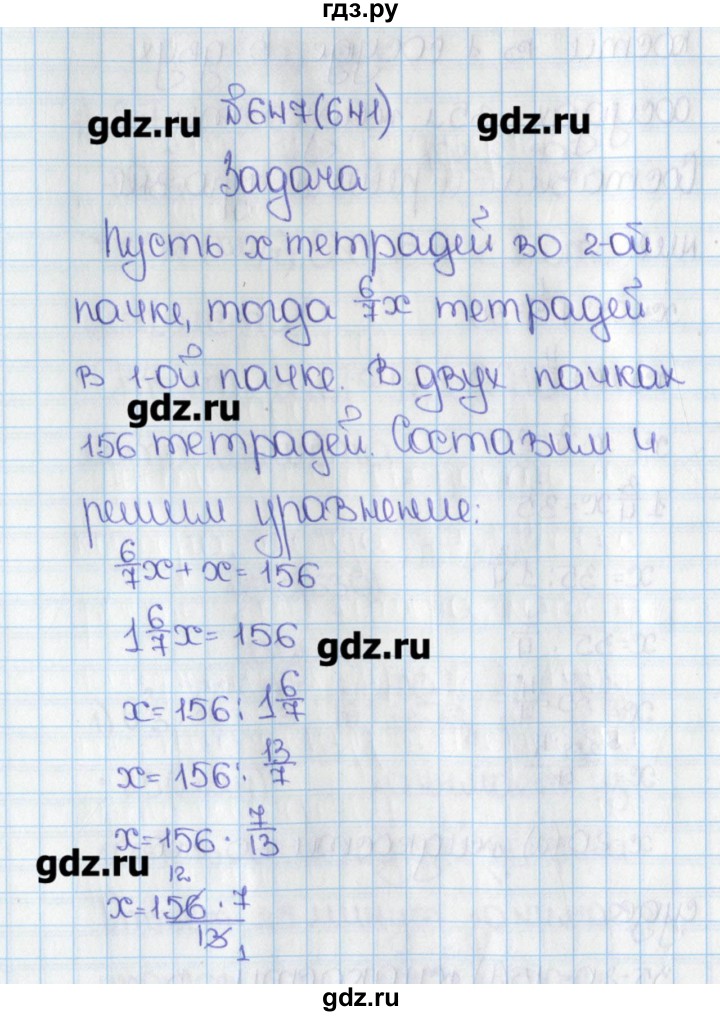 гдз.ру
№647(641)
gdz.ru
gdz.ru
Задача
Пусть x тетрадей во 2-ой
пачке, тогда 6/7 x тетрадей
в 1-ой пачке. В двух пачках
gdz.ru
156 тетрадей. Составим и
решим уравнение:
6/7 x + x = 156
1 6/7 x = 156
gdz.ru
x = 156 : 1 6/7
x = 156 : 13/7
x = 156 · 7/13
gdz.ru
12
x = 156 · 7
13 1
gdz.ru